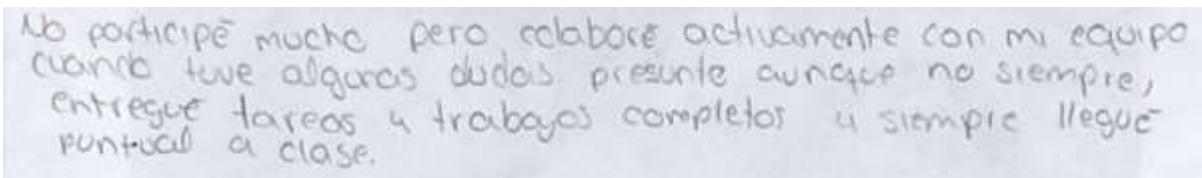 No participé mucho pero colaboré activamente con mi equipo
cuando tuve algunas dudas presunte aunque no siempre,
entregué tareas y trabajos completos y siempre llegué
puntual a clase.